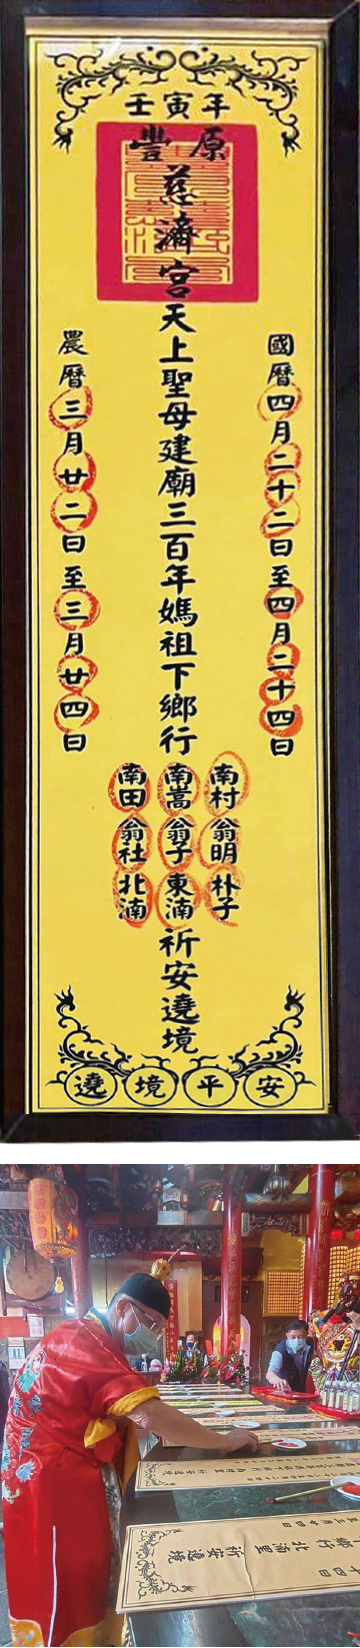 壬寅年
豐原
慈濟宮天上聖母建廟三百年媽祖下鄉行
國曆四月二十二日至四月二十四日
農曆三月廿二日至三月廿四日
南村 翁明 朴子
南嵩 翁子 東湳
南田 翁社 北湳
祈安遶境
遶境平安
鄉行北湳里祈安遶境